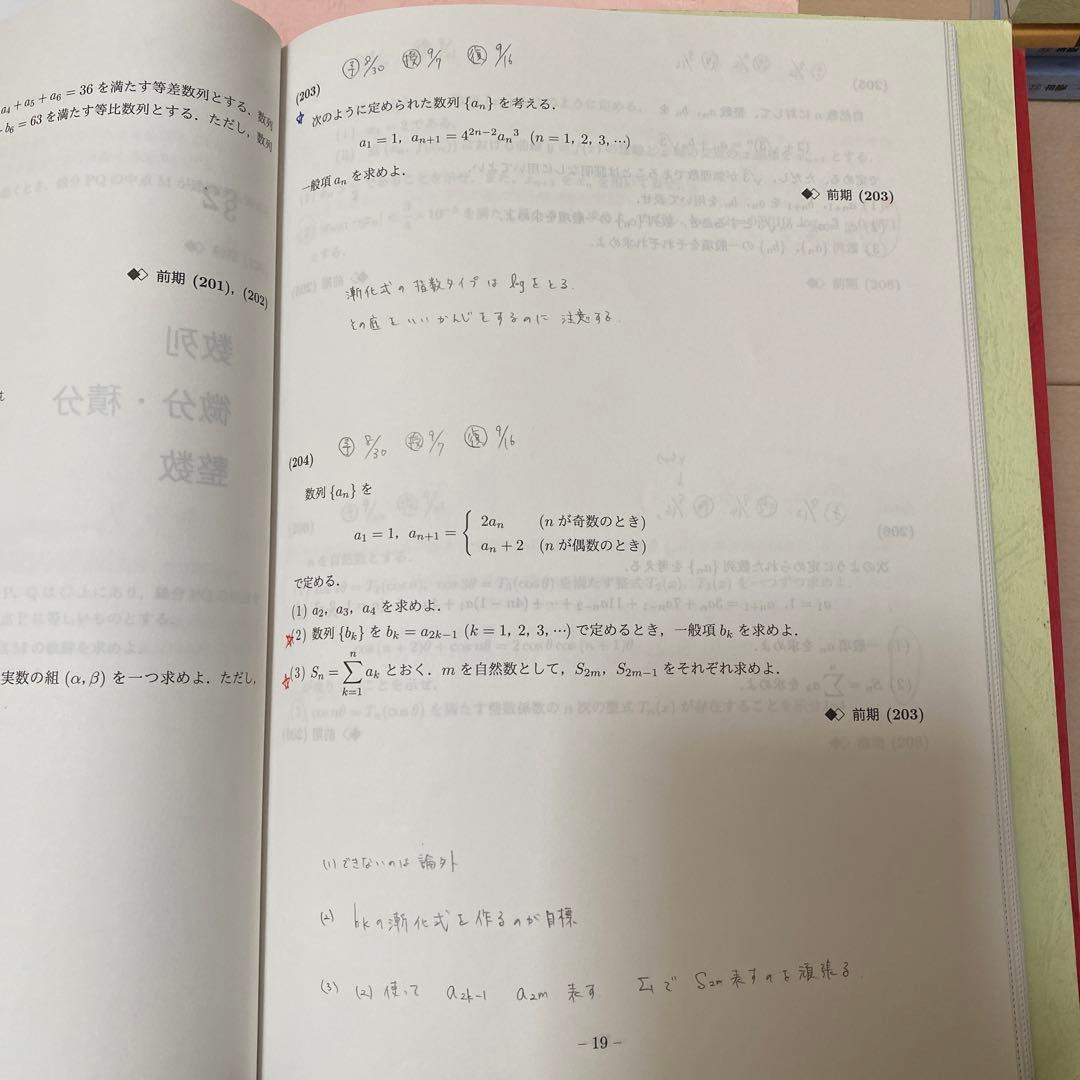 a₄ + a₅ + a₆ = 36 を満たす等差数列とする．数列
b₆ = 63 を満たす等比数列とする．ただし，数列
◆◇ 前期 (201)，(202)
実数の組 (α, β) を一つ求めよ．ただし，
予 8/30 授 9/7 復 9/16
(203)
次のように定められた数列 {aₙ} を考える．
a₁ = 1, aₙ₊₁ = 4²ⁿ⁻²aₙ³ (n = 1, 2, 3, …)
一般項 aₙ を求めよ．
◆◇ 前期 (203)
漸化式の指数タイプは logをとる.
その底をいいかんじをするのに 注意する.
予 8/30 授 9/7 復 9/16
(204)
数列 {aₙ} を
a₁ = 1, aₙ₊₁ = { 2aₙ (n が奇数のとき)
aₙ + 2 (n が偶数のとき)
で定める．
(1) a₂, a₃, a₄ を求めよ．
(2) 数列 {bₖ} を bₖ = a₂ₖ₋₁ (k = 1, 2, 3, …) で定めるとき，一般項 bₖ を求めよ．
(3) Sₙ = Σₖ₌₁ⁿ aₖ とおく．m を自然数として，S₂ₘ，S₂ₘ₋₁ をそれぞれ求めよ．
◆◇ 前期 (203)
(1) できないのは 論外
(2) bₖの漸化式を作るのが目標
(3) (2) 使って a₂ₖ₋₁ a₂ₘ 表す Σで S₂ₘ 表すのを頑張る
– 19 –